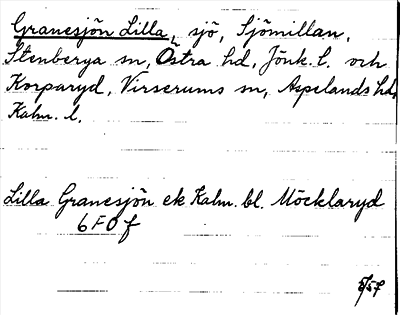 Granesjön Lilla, sjö, Sjömillan,
Stenberga sn, Östra hd, Jönk. l. och
Korparyd, Virserums sn, Aspelands hd,
Kalm. l.
Lilla Granesjön ek Kalm. bl. Möcklaryd
6 F 0 f